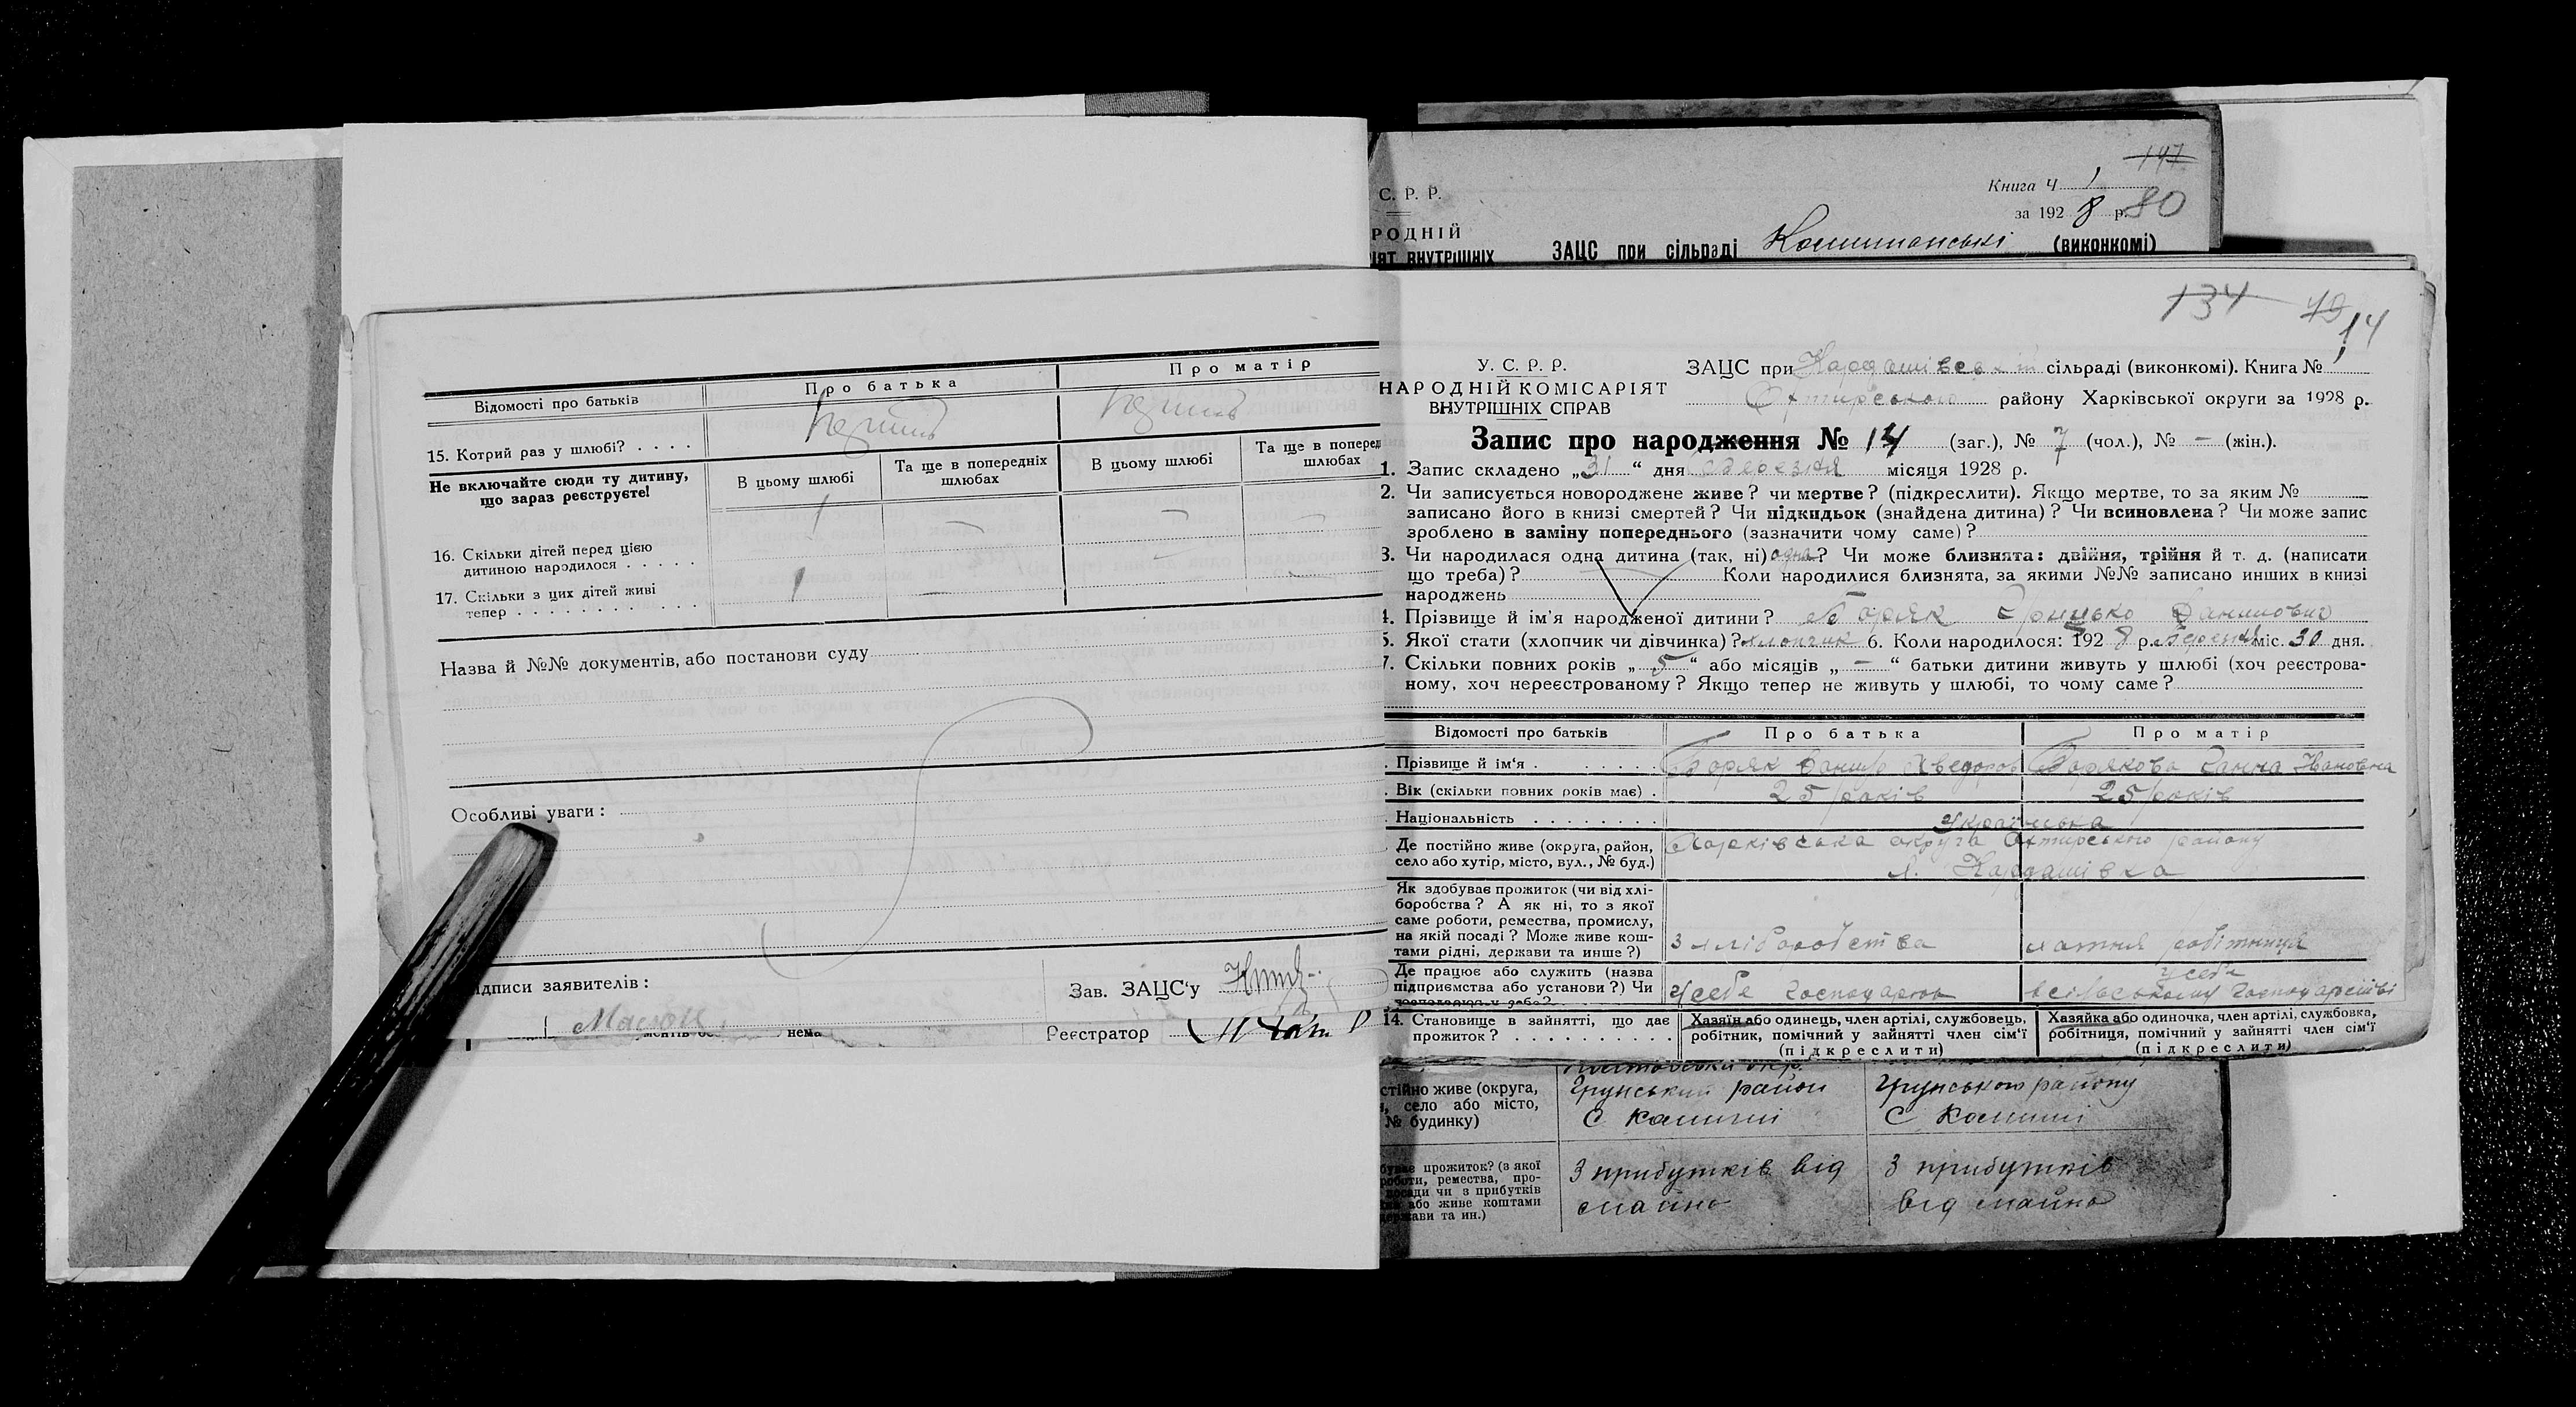 Відомості про батьків
Про батька
Про матір
15. Котрий раз у шлюбі? . . . .
Не включайте сюди ту дитину,
що зараз реєструєте!
В цьому шлюбі
Та ще в попередніх
шлюбах
В цьому шлюбі
Та ще в поперед
шлюбах
16. Скільки дітей перед цією
дитиною народилося . . . . .
1 — — —
17. Скільки з цих дітей живі
тепер . . . . . . . . . . .
1 — — —
Назва й №№ документів, або постанови суду
Особливі уваги:
ідписи заявителів:
Зав. ЗАЦС'у
нема
Реєстратор
С. Р. Р.
РОДНІЙ
ІЯТ ВНУТРІШНІХ
147
Книга Ч 1
за 1928 р. 80
ЗАЦС при сільраді (виконкомі)
134 14
У. С. Р. Р.
НАРОДНІЙ КОМІСАРІЯТ
ВНУТРІШНІХ СПРАВ
ЗАЦС при Кардашівській сільраді (виконкомі). Книга № 1
Охтирського району Харківської округи за 1928 р.
Запис про народження № 14 (заг.), № 7 (чол.), № — (жін.).
1. Запис складено „31“ дня березня місяця 1928 р.
2. Чи записується новороджене живе? чи мертве? (підкреслити). Якщо мертве, то за яким №
записано його в книзі смертей? Чи підкидьок (знайдена дитина)? Чи всиновлена? Чи може запис
зроблено в заміну попереднього (зазначити чому саме)?
3. Чи народилася одна дитина (так, ні) одна? Чи може близнята: двійня, трійня й т. д. (написати
що треба)? Коли народилися близнята, за якими №№ записано инших в книзі
народжень
4. Прізвище й ім'я народженої дитини? Боряк Грицько Данилович
5. Якої стати (хлопчик чи дівчинка)? хлопчик 6. Коли народилося: 1928 р. березня міс. 30 дня.
7. Скільки повних років „5“ або місяців „—“ батьки дитини живуть у шлюбі (хоч реєстрова-
ному, хоч нереєстрованому? Якщо тепер не живуть у шлюбі, то чому саме?
Відомості про батьків
Про батька
Про матір
Прізвище й ім'я . . . . . .
Боряк Данило Хведоров
Борякова Ганна Івановна
Вік (скільки повних років має) .
25 років
25 років
Національність . . . . . . . .
Українська
Де постійно живе (округа, район,
село або хутір, місто, вул., № буд.)
Харківська округа Охтирського району
с. Кардашівка
Як здобуває прожиток (чи від хлі-
боробства? А як ні, то з якої
саме роботи, ремества, промислу,
на якій посаді? Може живе кош-
тами рідні, держави та инше?)
З хліборобства
хатня робітниця
Де працює або служить (назва
підприємства або установи?) Чи
господарює у себе?
у себе господарює
у себе
в сільському господарстві
14. Становище в зайнятті, що дає
прожиток? . . . . . . . . . .
Хазяїн або одинець, член артілі, службовець,
робітник, помічний у зайнятті член сім'ї
(підкреслити)
Хазяйка або одиночка, член артілі, службовка,
робітниця, помічний у зайнятті член сім'ї
(підкреслити)
стійно живе (округа,
село або місто,
№ будинку)
Грунський район
Грунського району
прожиток? (з якої
роботи, ремества, про-
посади чи з прибутків
або живе коштами
держави та ин.)
З прибутків від
майно
З прибутків
від майно